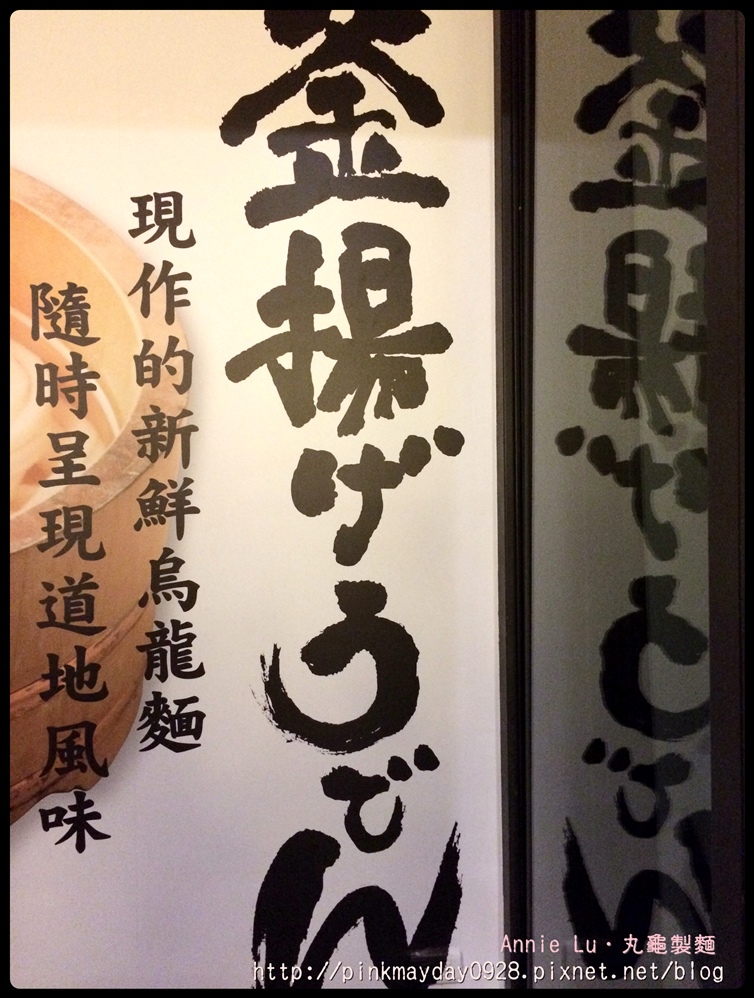 釜揚げうどん
現作的新鮮烏龍麵
隨時呈現道地風味
Annie Lu・丸龜製麵
http://pinkmayday0928.pixnet.net/blog